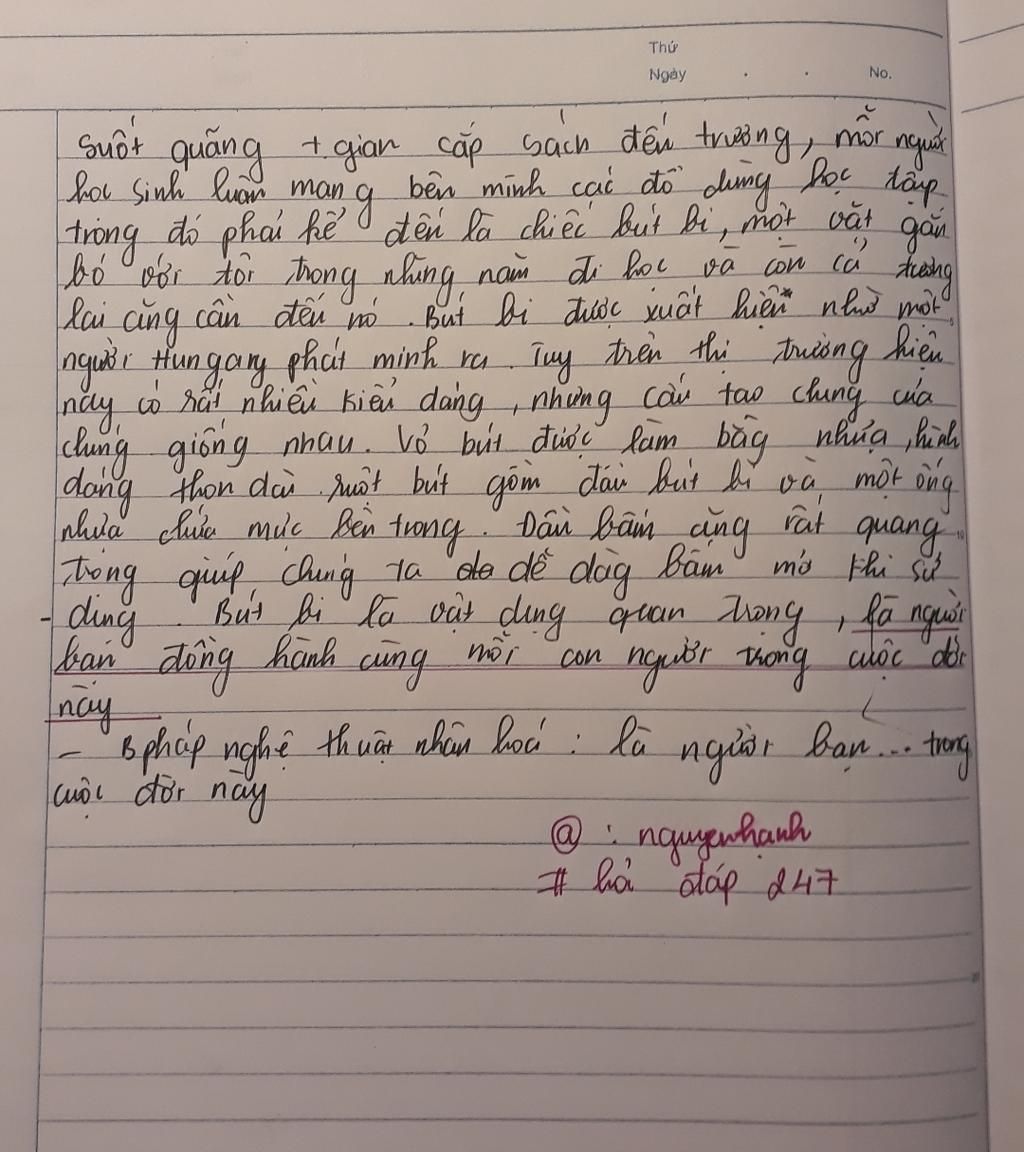 Thứ
Ngày . . No.
Suốt quãng t.gian cắp sách đến trường, mỗi người
học sinh luôn mang bên mình các đồ dùng học tập
trong đó phải kể đến là chiếc bút bi, một vật gắn
bó với tôi trong những năm đi học và còn cả tương
lai cũng cần đến nó. Bút bi được xuất hiện nhờ một
người Hungary phát minh ra. Tuy trên thị trường hiện
nay có rất nhiều kiểu dáng, nhưng cấu tạo chung của
chúng giống nhau. Vỏ bút được làm bằg nhựa, hình
dáng thon dài. ruột bút gồm đầu bút bi và một ống
nhựa chứa mực bên trong. Đầu bấm cũng rất quang
trọng giúp chúng ta dễ dàg bấm mở khi sử
- dụng. Bút bi là vật dụng quan trọng, là người
bạn đồng hành cùng mỗi con người trong cuộc đời
này
- B pháp nghệ thuật nhân hoá : là người bạn... trong
cuộc đời này
@ : nguyenhạnh
# hỏi đáp 247